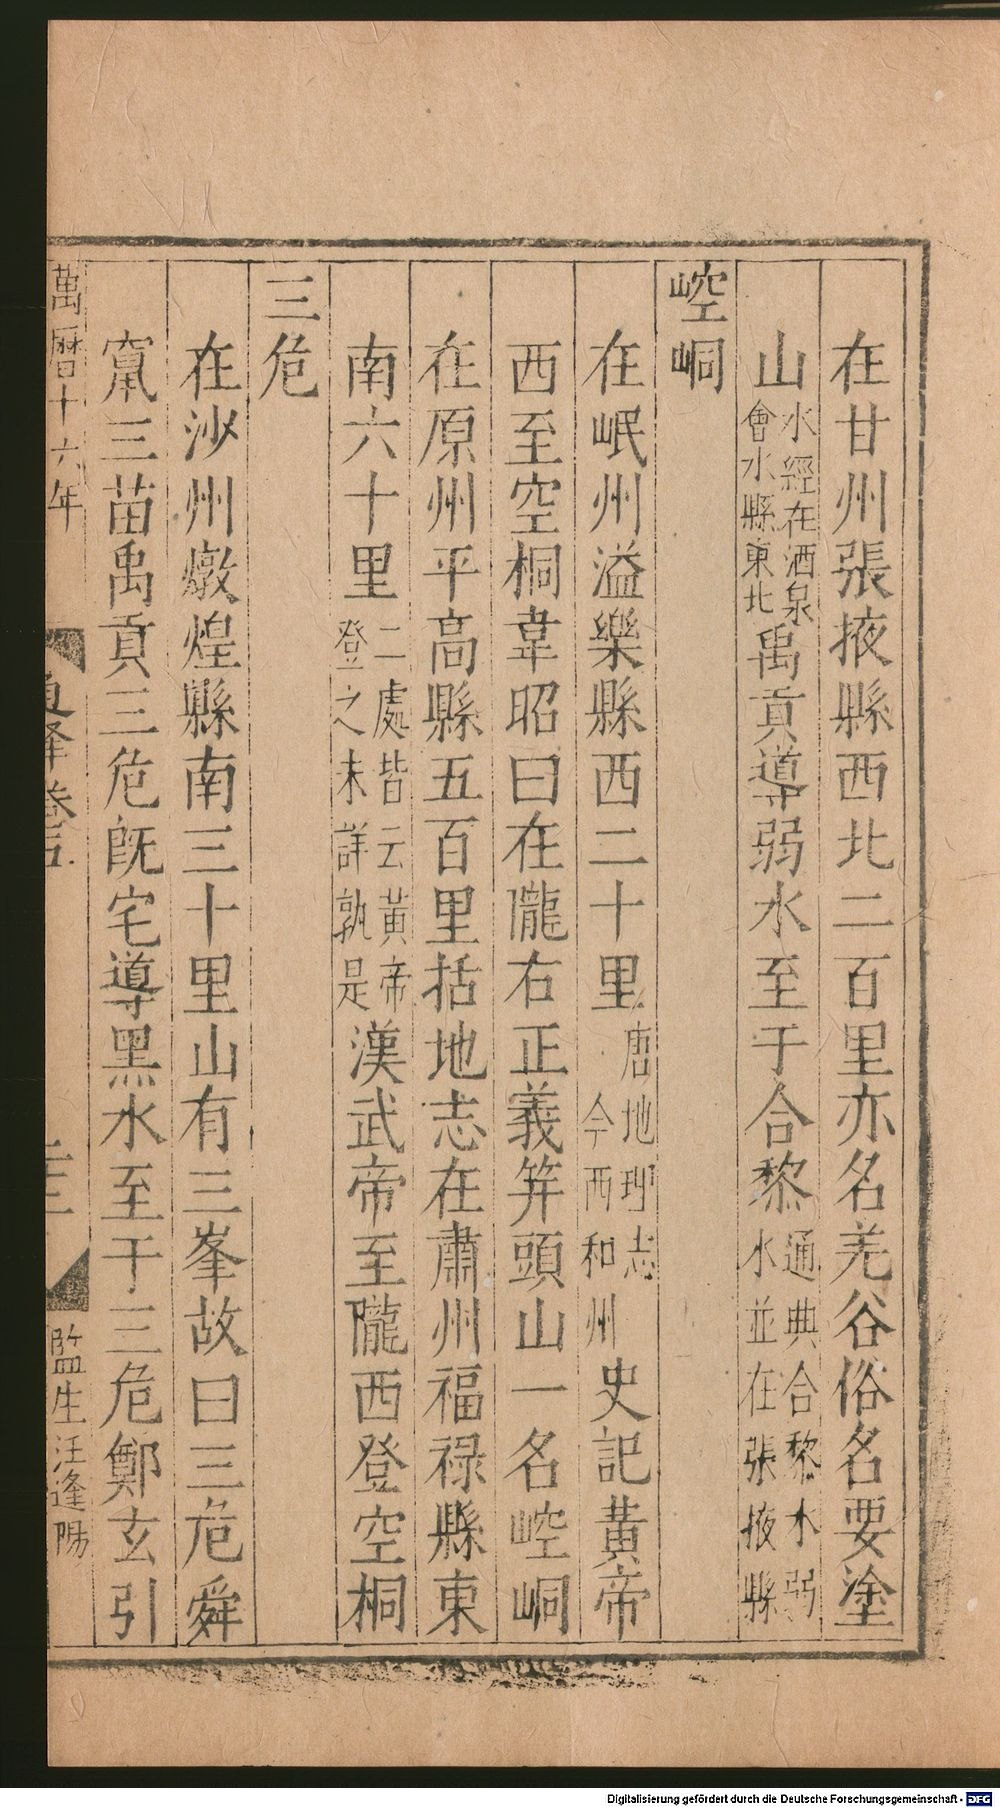 在甘州張掖縣西北二百里亦名羌谷俗名要塗
山水經在酒泉會水縣東北禹貢導弱水至于合黎通典合黎水弱水並在張掖縣
崆峒
在岷州溢樂縣西二十里唐地理志今西和州史記黃帝
西至空桐韋昭曰在隴右正義笄頭山一名崆峒
在原州平高縣五百里括地志在肅州福禄縣東
南六十里二處皆云黃帝登之未詳孰是漢武帝至隴西登空桐
三危
在沙州燉煌縣南三十里山有三峯故曰三危舜
竄三苗禹貢三危旣宅導黑水至于三危鄭玄引
萬曆十六年
通釋卷五
監生汪逢陽
Digitalisierung gefördert durch die Deutsche Forschungsgemeinschaft - DFG